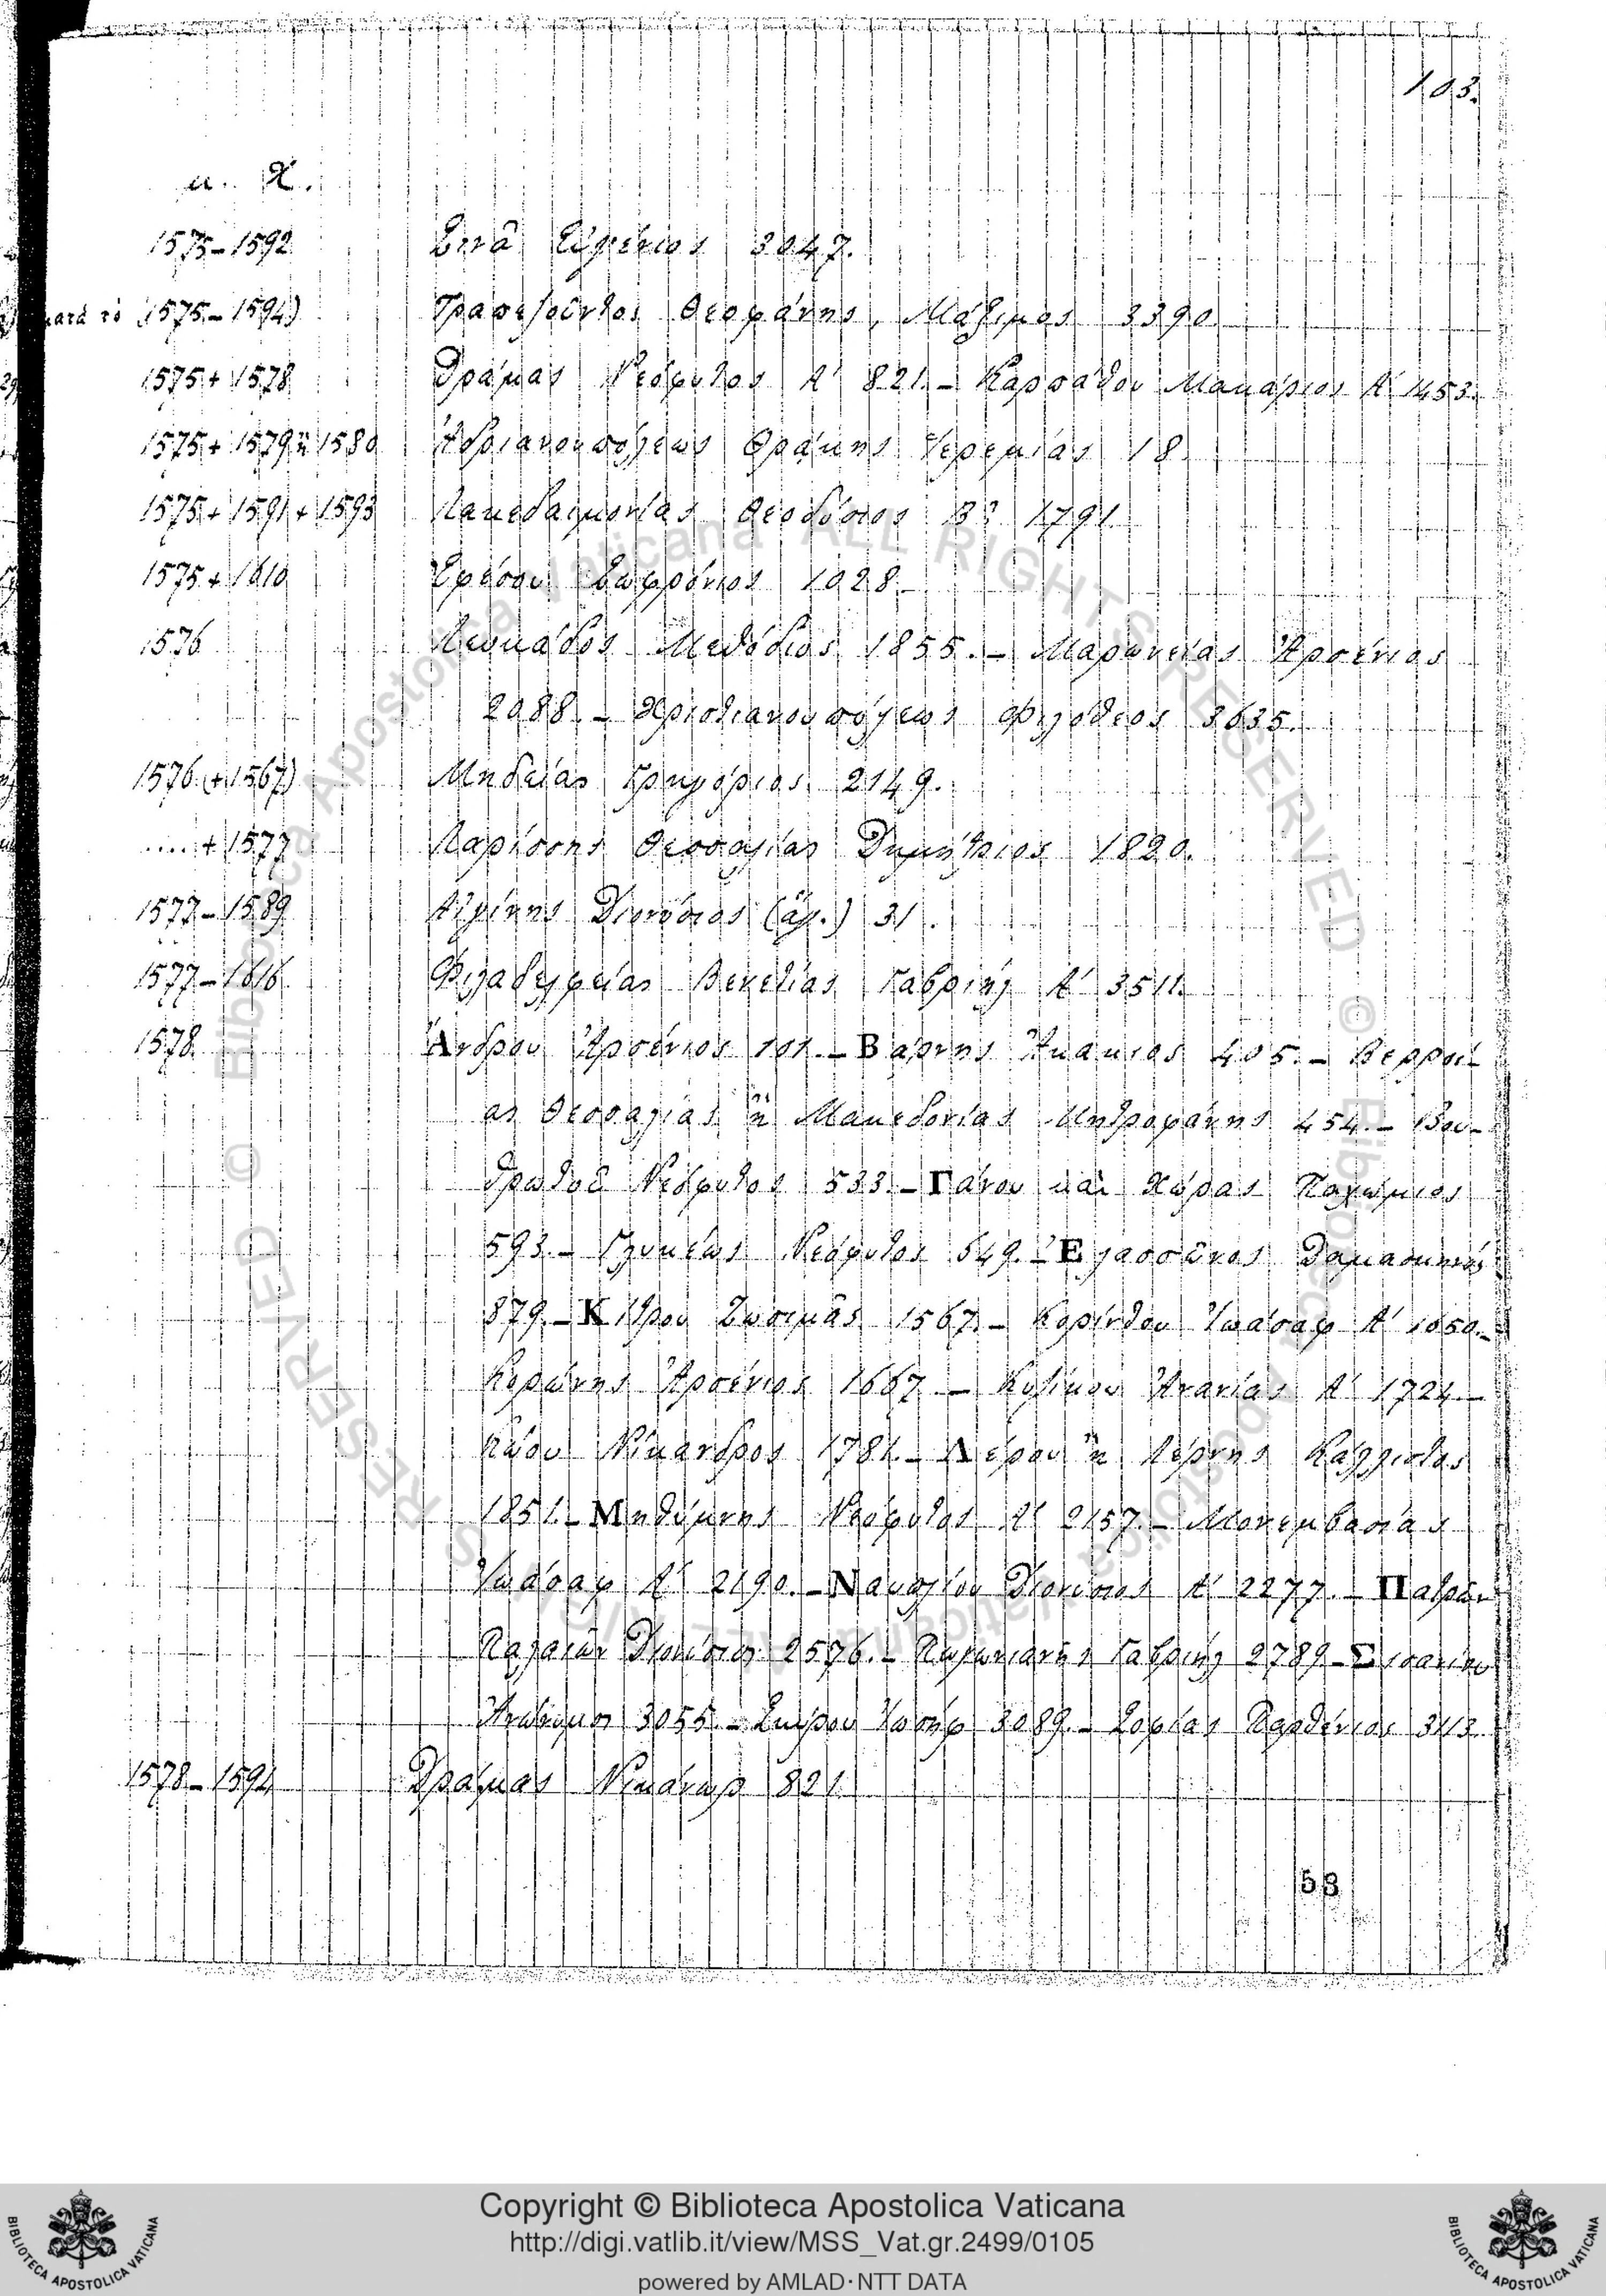 103.
μ. Χ.
1575-1592 Σινᾶ Εὐγένιος 3047.
κατὰ τὸ (1575-1594) Τραπεζοῦντος Θεοφάνης, Μάξιμος 3390
1575+1578 Δράμας Νεόφυτος Α' 821.- Καρπάθου Μακάριος Α' 1453.
1575+1579 ἢ 1580 Ἀδριανουπόλεως Θράκης Ἱερεμίας 18.
1575+1591+1593 Λακεδαιμονίας Θεοδόσιος Β? 1791.
1575+1610 Ἐφέσου Σωφρόνιος 1028.
1576 Λευκάδος Μεθόδιος 1855.- Μαρωνείας Ἀρσένιος
2088.- Χριστιανουπόλεως Φιλόθεος 3635.
1576 (+1567) Μηδείας Γρηγόριος 2149.
....+1577 Λαρίσσης Θεσσαλίας Δημήτριος 1820.
1577-1589 Αἰγίνης Διονύσιος (ἅγ.) 31.
1577-1616 Φιλαδελφείας Βενετίας Γαβριὴλ Α' 3511.
1578 Ἄνδρου Ἀρσένιος 101.- Βάρνης Ἀκάκιος 405.- Βερροί-
ας Θεσσαλίας ἢ Μακεδονίας Μητροφάνης 454.- Βου-
θρωτοῦ Νεόφυτος 533.- Γάνου καὶ Χώρας Παχώμιος
593.- Γλυκέως Νεόφυτος 649.- Ἐλασσῶνος Δαμασκηνός
879.- Κίτρου Ζωσιμᾶς 1567.- Κορίνθου Ἰωάσαφ Α' 1650.-
Κορώνης Ἀρσένιος 1667.- Κυζίκου Ἀνανίας Α' 1724.-
Κώου Νίκανδρος 1781.- Λέρου ἢ Λέρνης Κάλλιστος
1851.- Μηθύμνης Νεόφυτος Α' 2157.- Μονεμβασίας
Ἰωάσαφ Α' 2190.- Ναυπλίου Διονύσιος Α' 2277.- Πατρῶν
Παλαιῶν Διονύσιος 2576.- Πωγωνιανῆς Γαβριὴλ 2789.- Σισανίου
Ἀνθιμος 3055.- Σκύρου Ἰωσὴφ 3089.- Σοφίας Παρθένιος 3113
1578-1594 Δράμας Νικάνωρ 821.
53
Copyright © Biblioteca Apostolica Vaticana
http://digi.vatlib.it/view/MSS_Vat.gr.2499/0105
powered by AMLAD·NTT DATA
BIBLIOTECA APOSTOLICA VATICANA
BIBLIOTECA APOSTOLICA VATICANA